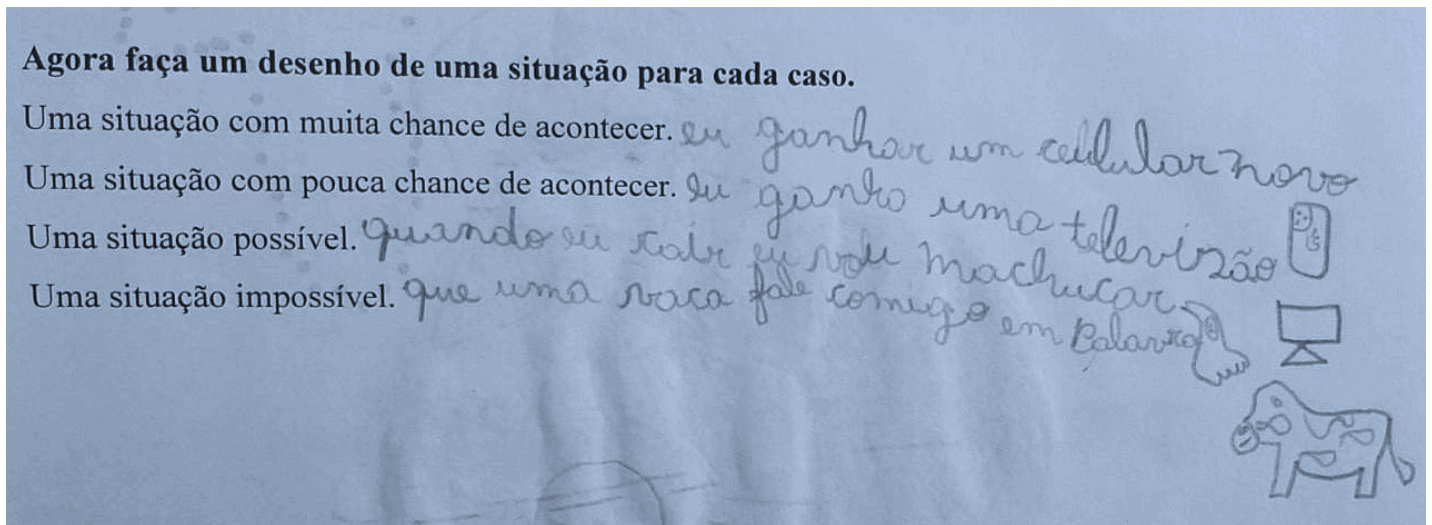 Agora faça um desenho de uma situação para cada caso.
Uma situação com muita chance de acontecer. eu ganhar um celular novo
Uma situação com pouca chance de acontecer. eu ganho uma televizão
Uma situação possível. quando eu cair eu vou machucar
Uma situação impossível. que uma vaca fale comigo em palavra